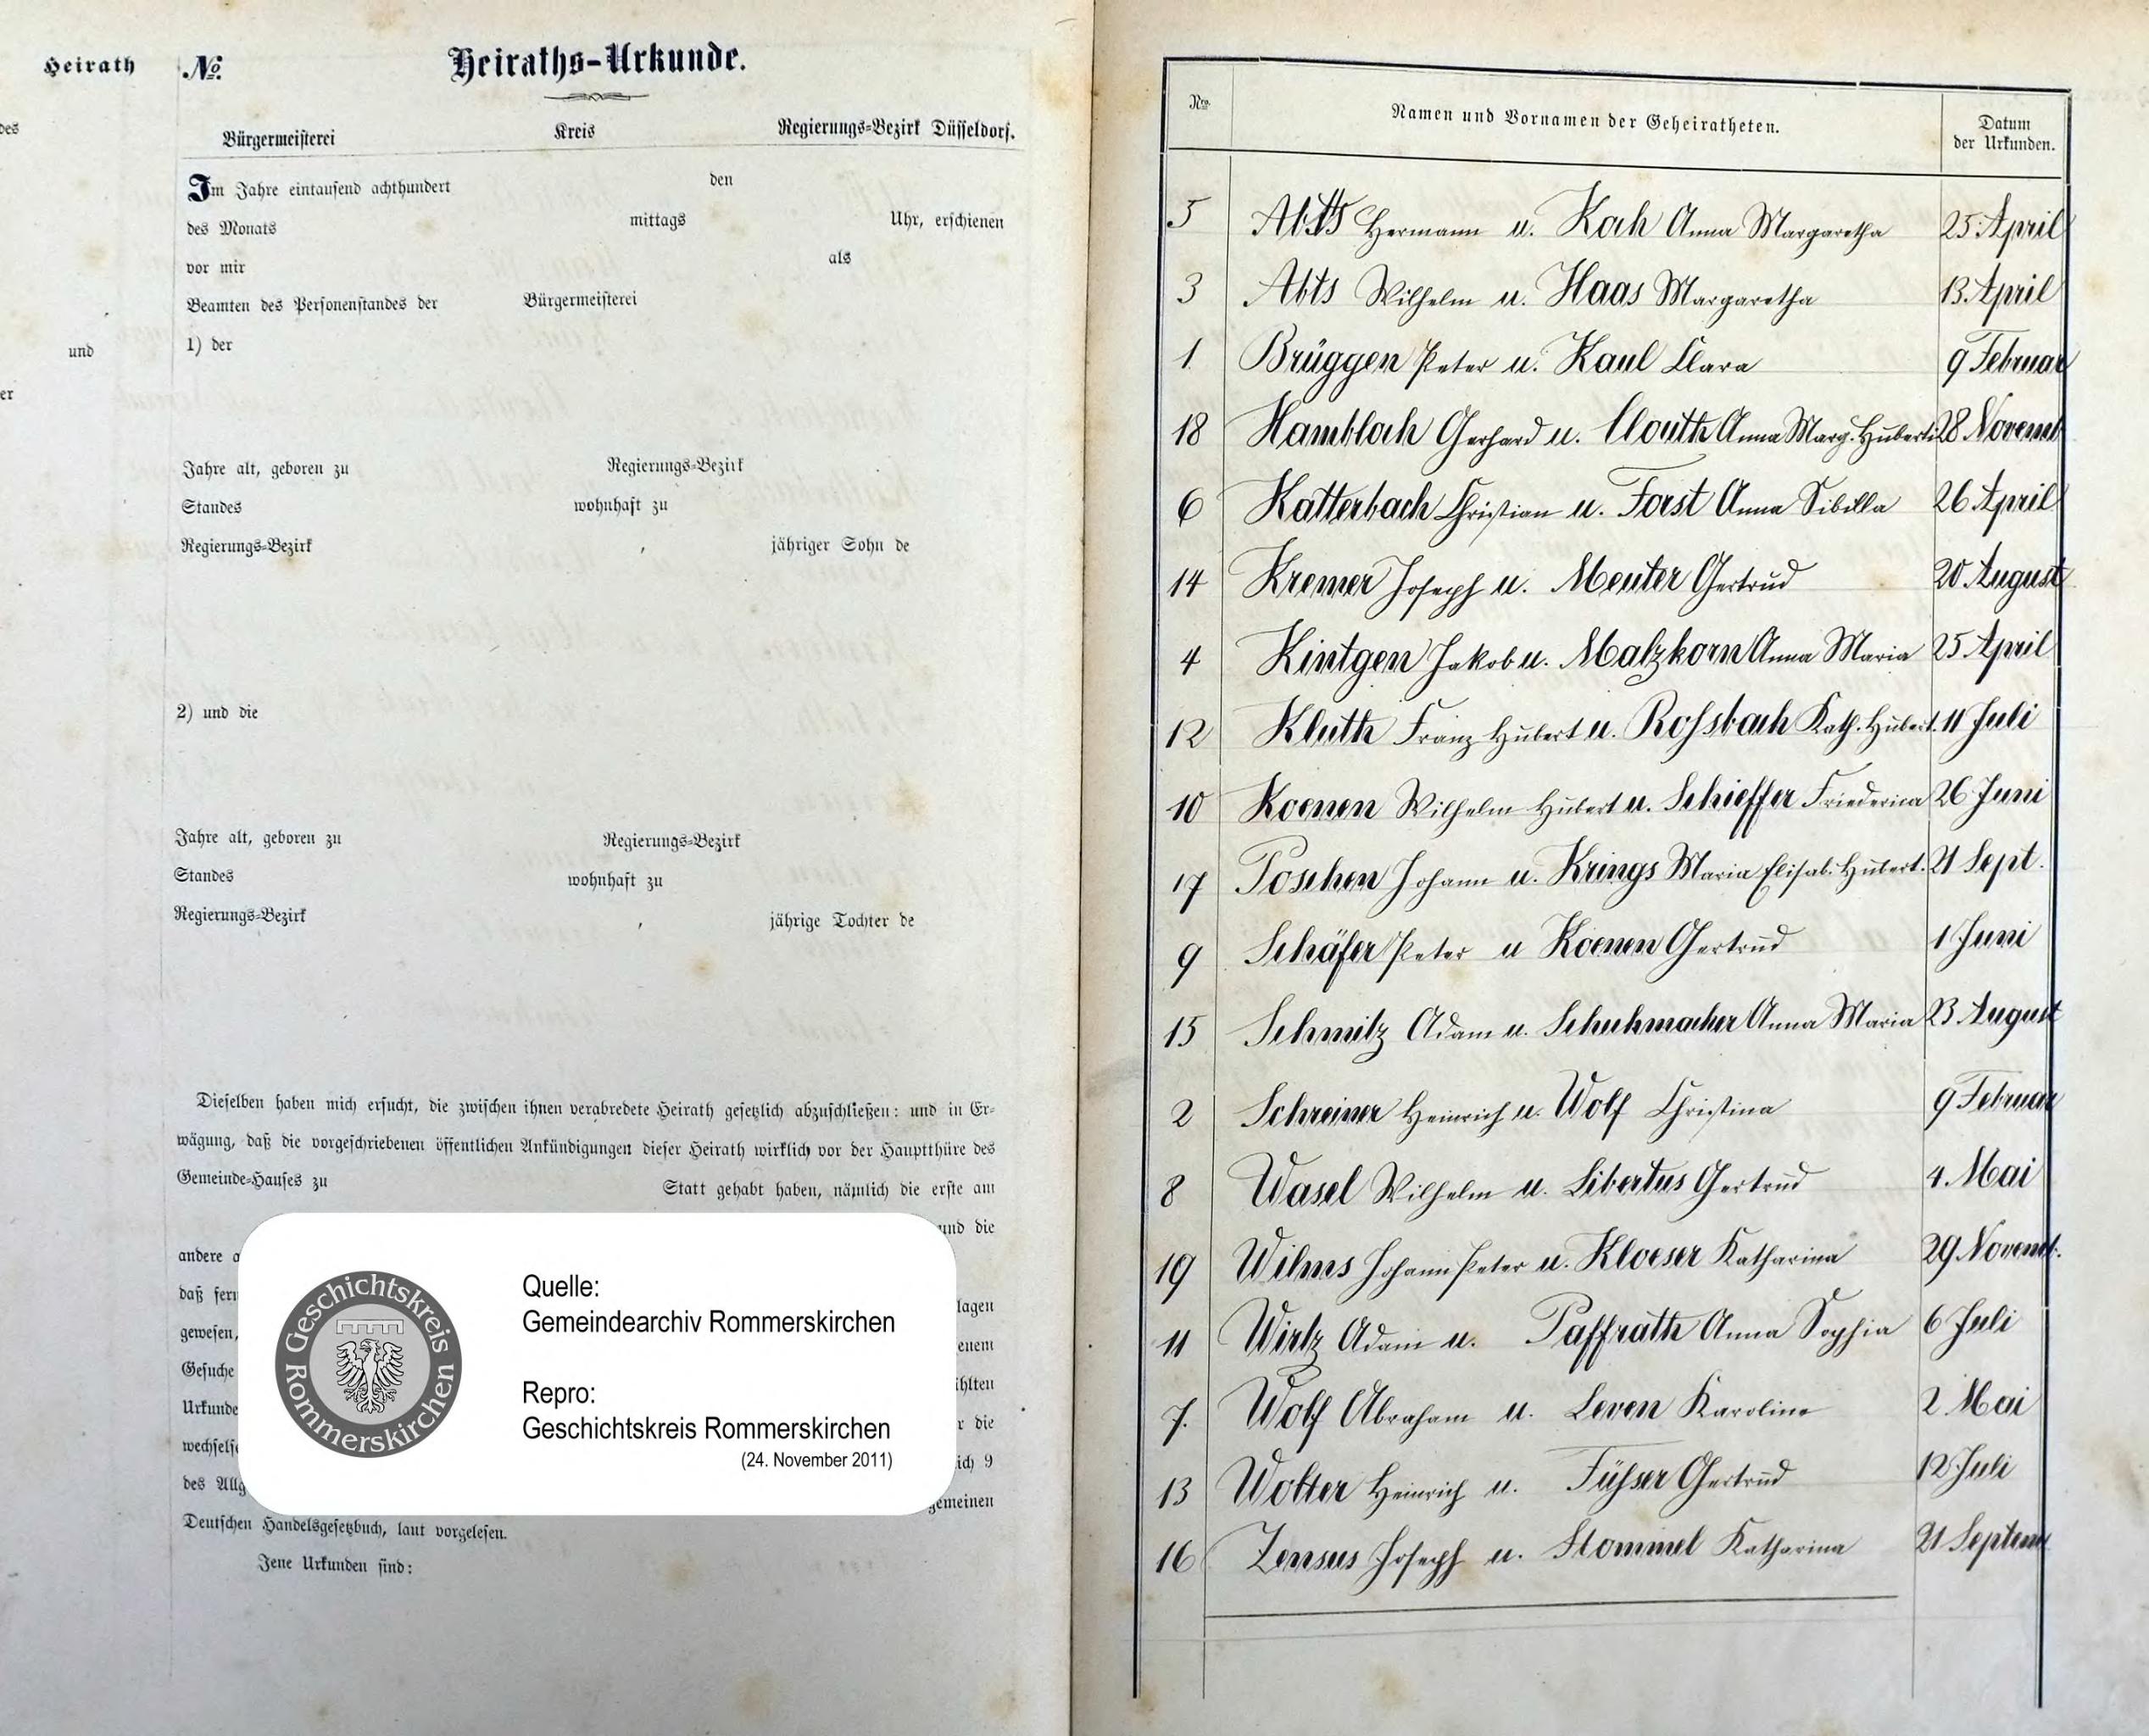 Heirath
des
und
er
No. Heiraths-Urkunde.
Bürgermeisterei Kreis Regierungs-Bezirk Düsseldorf.
Im Jahre eintausend achthundert den
des Monats mittags Uhr, erschienen
vor mir als
Beamten des Personenstandes der Bürgermeisterei
1) der
Jahre alt, geboren zu Regierungs-Bezirk
Standes wohnhaft zu
Regierungs-Bezirk , jähriger Sohn de
2) und die
Jahre alt, geboren zu Regierungs-Bezirk
Standes wohnhaft zu
Regierungs-Bezirk , jährige Tochter de
Dieselben haben mich ersucht, die zwischen ihnen verabredete Heirath gesetzlich abzuschließen: und in Er-
wägung, daß die vorgeschriebenen öffentlichen Ankündigungen dieser Heirath wirklich vor der Hauptthüre des
Gemeinde-Hauses zu Statt gehabt haben, nämlich die erste am
und die
andere
daß
gewesen,
Gesuche
Urkunde
r die
des 9
gemeinen
Deutschen Handelsgesetzbuch, laut vorgelesen.
Jene Urkunden sind:
Quelle:
Gemeindearchiv Rommerskirchen
Repro:
Geschichtskreis Rommerskirchen
(24. November 2011)
Geschichtskreis Rommerskirchen
Nro. Namen und Vornamen der Geheiratheten. Datum
der Urkunden.
5 Abts Hermann u. Koch Anna Margaretha 25 April
3 Abts Wilhelm u. Haas Margaretha 13. April
1 Brüggen Peter u. Kaul Clara 9 Februar
18 Hambloch Gerhard u. Clouth Anna Marg. Huberti 28 Novemb
6 Katterbach Christian u. Forst Anna Sibilla 26 April
14 Kremer Joseph u. Meuter Gertrud 20 August
4 Kintgen Jakob u. Malzkorn Anna Maria 25 April
12 Kluth Franz Hubert u. Roßbach Kath. Hubert. 11 Juli
10 Koenen Wilhelm Hubert u. Schieffer Friederica 26 Juni
17 Poschen Johann u. Krings Maria Elisab. Hubert. 21 Sept.
9 Schäfer Peter u Koenen Gertrud 1 Juni
15 Schmitz Adam u. Schuhmacher Anna Maria 23 August
2 Schreiner Heinrich u. Wolf Christina 9 Februar
8 Wasel Wilhelm u. Libertus Gertrud 4. Mai
19 Wilms Johann Peter u. Kloeser Katharina 29 Novemb.
11 Wirtz Adam u. Paffrath Anna Sophia 6 Juli
7. Wolf Abraham u. Leven Karoline 2 Mai
13 Wolter Heinrich u. Füßer Gertrud 12 Juli
16 Zensus Joseph u. Stommel Katharina 21 Septem